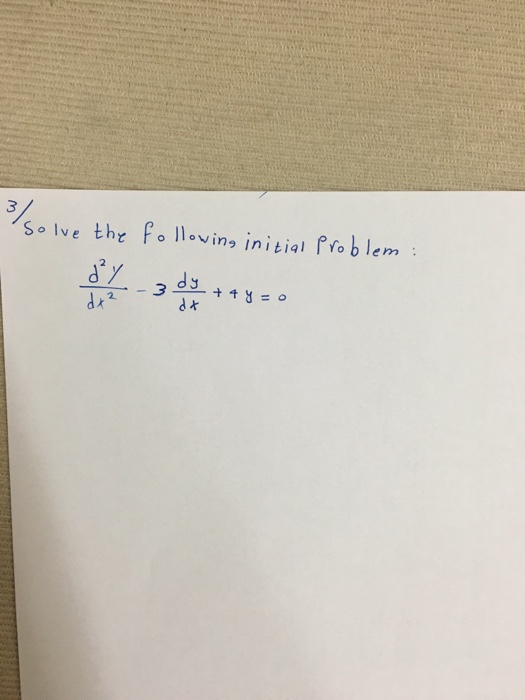 3/ Solve the following initial Problem :
d²y/dx² - 3 dy/dx + 4y = 0